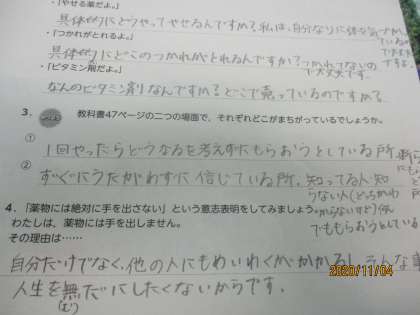 ・「やせる薬だよ。」
具体的にどうやってやせるんですか？私は、自分なりに体を気づかっているので大丈夫ですよ
・「つかれがとれるよ。」
具体的にどこのつかれがとれるんですか？つかれてないので大丈夫です。
・「ビタミン剤だよ。」
なんのビタミン剤なんですか？どこで売っているのですか？
3. 教科書47ページの二つの場面で、それぞれどこがまちがっているでしょうか。
① 1回やったらどうなるを考えずにもらおうとしている所。
② すぐにうたがわずに信じている所。知ってる人知らない人(どっちかわからないけど)何でももらおうとしている
4. 「薬物には絶対に手を出さない」という意志表明をしてみましょう。
わたしは、薬物には手を出しません。
その理由は……
自分だけでなく、他の人にもめいわくがかかるし、そんな事
人生を無だにしたくないからです。
(む)
2020/11/04